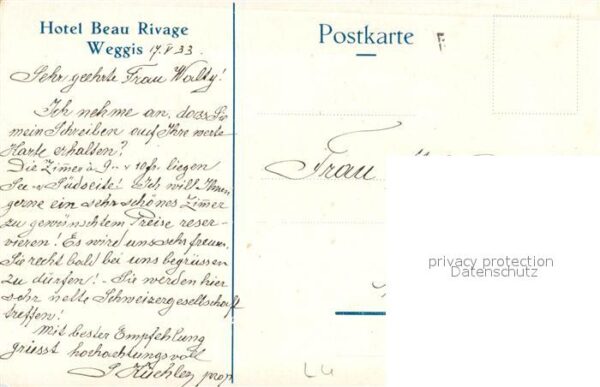 Hotel Beau Rivage
Weggis 17.V.33.
Sehr geehrte Frau Walty!
Ich nehme an, dass Sie
mein Schreiben auf Ihre werte
Karte erhalten?
Die Zimer à 9.- u 10fr. liegen
See - u Südseite! Ich will Ihnen
gerne ein sehr schönes Zimer
zu gewünschtem Preise reser-
vieren! Es wird uns sehr freuen,
Sie recht bald bei uns begrüssen
zu dürfen! - Sie werden hier
sehr nette Schweizergesellschaft
treffen!
Mit bester Empfehlung
grüsst hochachtungsvoll
Küchler prop
Postkarte
Frau
privacy protection
Datenschutz
LU